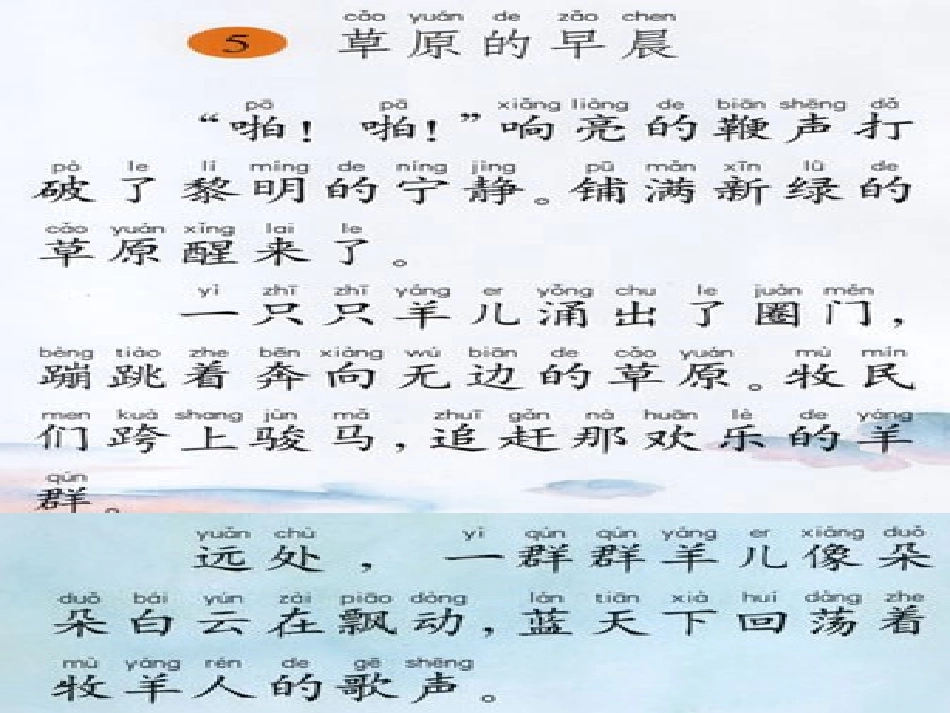 cǎo yuán de zǎo chen
5 草原的早晨
pā pā xiǎng liàng de biān shēng dǎ
“啪！啪！”响亮的鞭声打
pò le lí míng de níng jìng pū mǎn xīn lǜ de
破了黎明的宁静。铺满新绿的
cǎo yuán xǐng lai le
草原醒来了。
yì zhī zhī yáng er yǒng chu le juàn mén
一只只羊儿涌出了圈门，
bèng tiào zhe bēn xiàng wú biān de cǎo yuán mù mín
蹦跳着奔向无边的草原。牧民
men kuà shang jùn mǎ zhuī gǎn nà huān lè de yáng
们跨上骏马，追赶那欢乐的羊
qún
群。
yuǎn chù yì qún qún yáng er xiàng duǒ
远处，一群群羊儿像朵
duǒ bái yún zài piāo dòng lán tiān xià huí dàng zhe
朵白云在飘动，蓝天下回荡着
mù yáng rén de gē shēng
牧羊人的歌声。